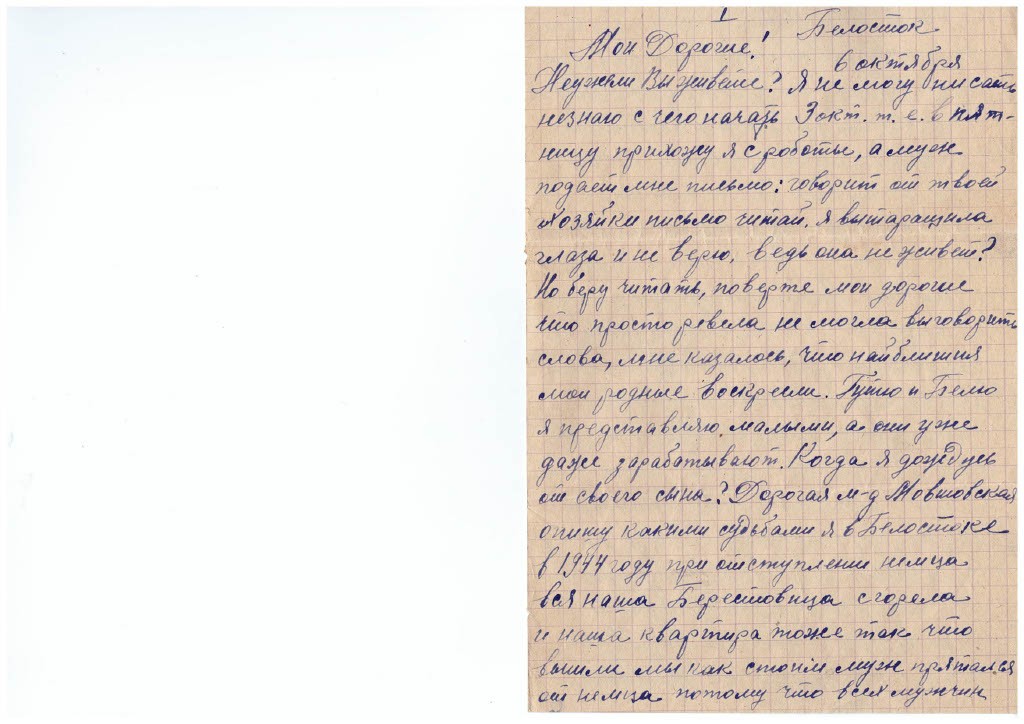 1
Белосток
Мои Дорогие!
6 октября
Неужели Вы живёте? Я не могу писать
незнаю с чего начать 3 окт. т. е. в пят-
ницу прихожу я с роботы, а муж
подает мне письмо: говорит от твоей
хозяйки письмо читай. я вытаращила
глаза и не верю, ведь она не живет?
Но беру читать, поверте мои дорогие
что просто ревела не могла выговорить
слова, мне казалось, что найближия
мои родные воскресли. Гутю и Белю
я представляю малыми, а они уже
даже зарабатывают. Когда я дождусь
от своего сына? Дорогая м-д Мовшовская
опишу какими судьбами я в Белостоке
в 1944 году при отступлении немца
вся наша Берестовица сгорела
и наша квартира тоже так что
вышли мы как стоим муж прятался
от немца потому что всех мужчин